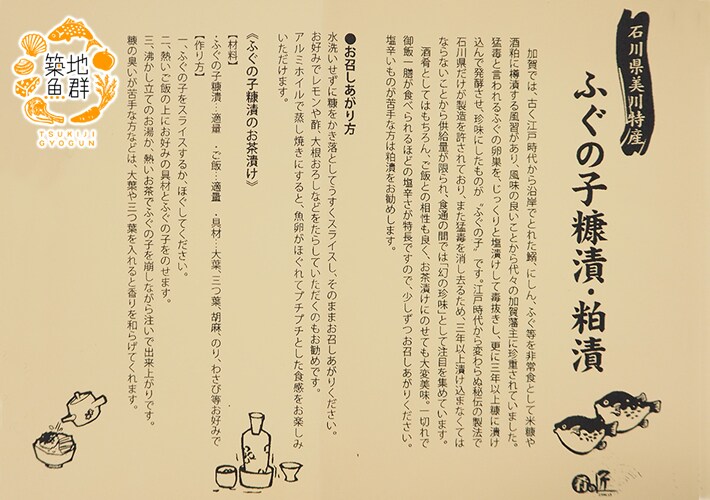 石川県美川特産
ふぐの子糠漬・粕漬
加賀では、古く江戸時代から沿岸でとれた鰯、にしん、ふぐ等を非常食として米糠や
酒粕に樽漬する風習があり、風味の良いことから代々の加賀藩主に珍重されていました。
猛毒と言われるふぐの卵巣を、じっくりと塩漬けして毒抜きし、更に三年以上糠に漬け
込んで発酵させ、珍味にしたものが〝ふぐの子〟です。江戸時代から変わらぬ秘伝の製法で
石川県だけが製造を許されており、また猛毒を消し去るため、三年以上漬け込まなくては
ならないことから供給量が限られ、食通の間では「幻の珍味」として注目を集めています。
酒肴としてはもちろん、ご飯との相性も良く、お茶漬けにのせても大変美味。一切れで
御飯一膳が食べられるほどの塩辛さが特長ですので、少しずつお召しあがりください。
塩辛いものが苦手な方は粕漬をお勧めします。
●お召しあがり方
水洗いせずに糠をかき落としてうすくスライスし、そのままお召しあがりください。
お好みでレモンや酢、大根おろしなどをたらしていただくのもお勧めです。
アルミホイルで蒸し焼きにすると、魚卵がほぐれてプチプチとした食感をお楽しみ
いただけます。
《ふぐの子糠漬のお茶漬け》
【材料】
・ふぐの子糠漬…適量 ・ご飯…適量 ・具材…大葉、三つ葉、胡麻、のり、わさび等お好みで
【作り方】
一、ふぐの子をスライスするか、ほぐしてください。
二、熱いご飯の上にお好みの具材とふぐの子をのせます。
三、沸かし立てのお湯か、熱いお茶でふぐの子を崩しながら注いで出来上がりです。
糠の臭いが苦手な方などは、大葉や三つ葉を入れると香りを和らげてくれます。
築地
魚群
TSUKIJI
GYOGUN
匠